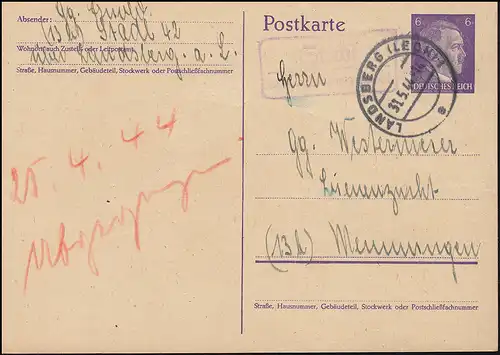 Absender:
(13b) Stadl 42
über Landsberg a. L.
Wohnort, auch Zustell- oder Leitpostamt
Straße, Hausnummer, Gebäudeteil, Stockwerk oder Postschließfachnummer
25. 4. 44
Postkarte
6 6
DEUTSCHES REICH
LANDSBERG (LECH)
31.5.44
e
Herrn
Gg. Westermeier
Bienenzucht
(13b) Memmingen
Straße, Hausnummer, Gebäudeteil, Stockwerk oder Postschließfachnummer